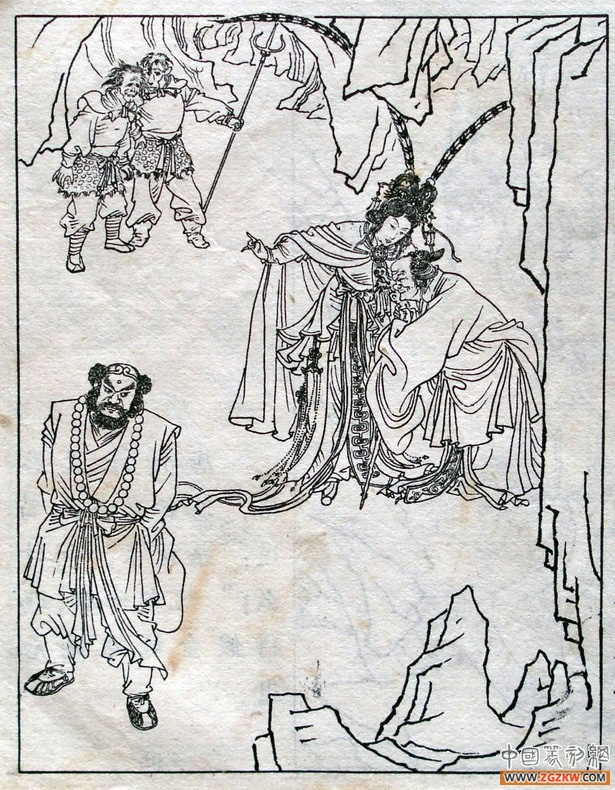 中国篆刻网
WWW.ZGZKW.COM